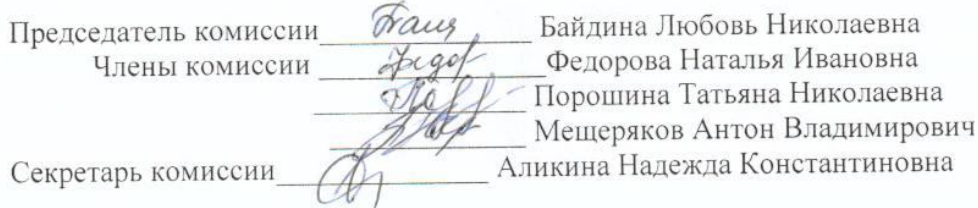 Председатель комиссии Байдина Любовь Николаевна
Члены комиссии Федорова Наталья Ивановна
Порошина Татьяна Николаевна
Мещеряков Антон Владимирович
Секретарь комиссии Аликина Надежда Константиновна